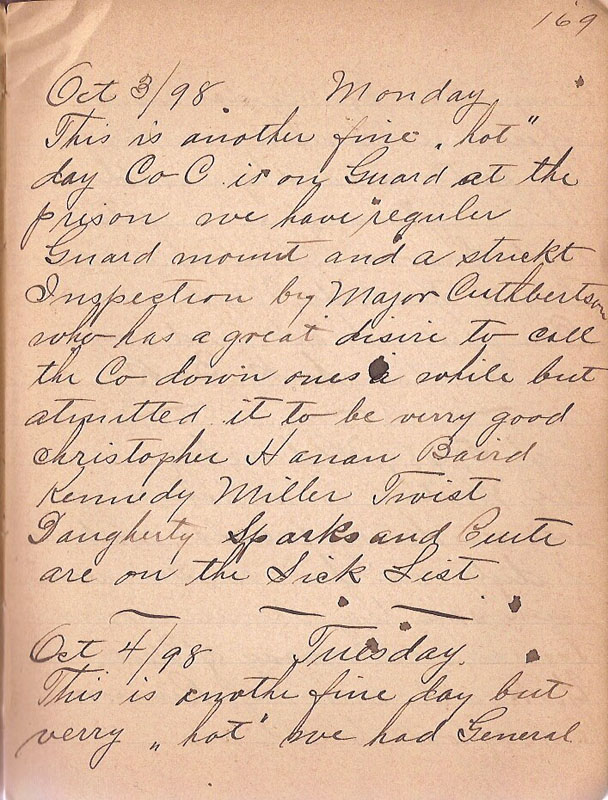 169
Oct 3/98 Monday
This is another fine „hot"
day Co C is on Guard at the
prison we have reguler
Guard mount and a strickt
Inspection by Major Cuthbertson
who has a great disire to call
the Co down ones a while but
atmitted it to be verry good
Christopher Hanan Baird
Kennedy Miller Twist
Daugherty Sparks and
are on the Sick List
Oct 4/98 Tuesday.
This is anothe fine day but
verry „hot" we had General